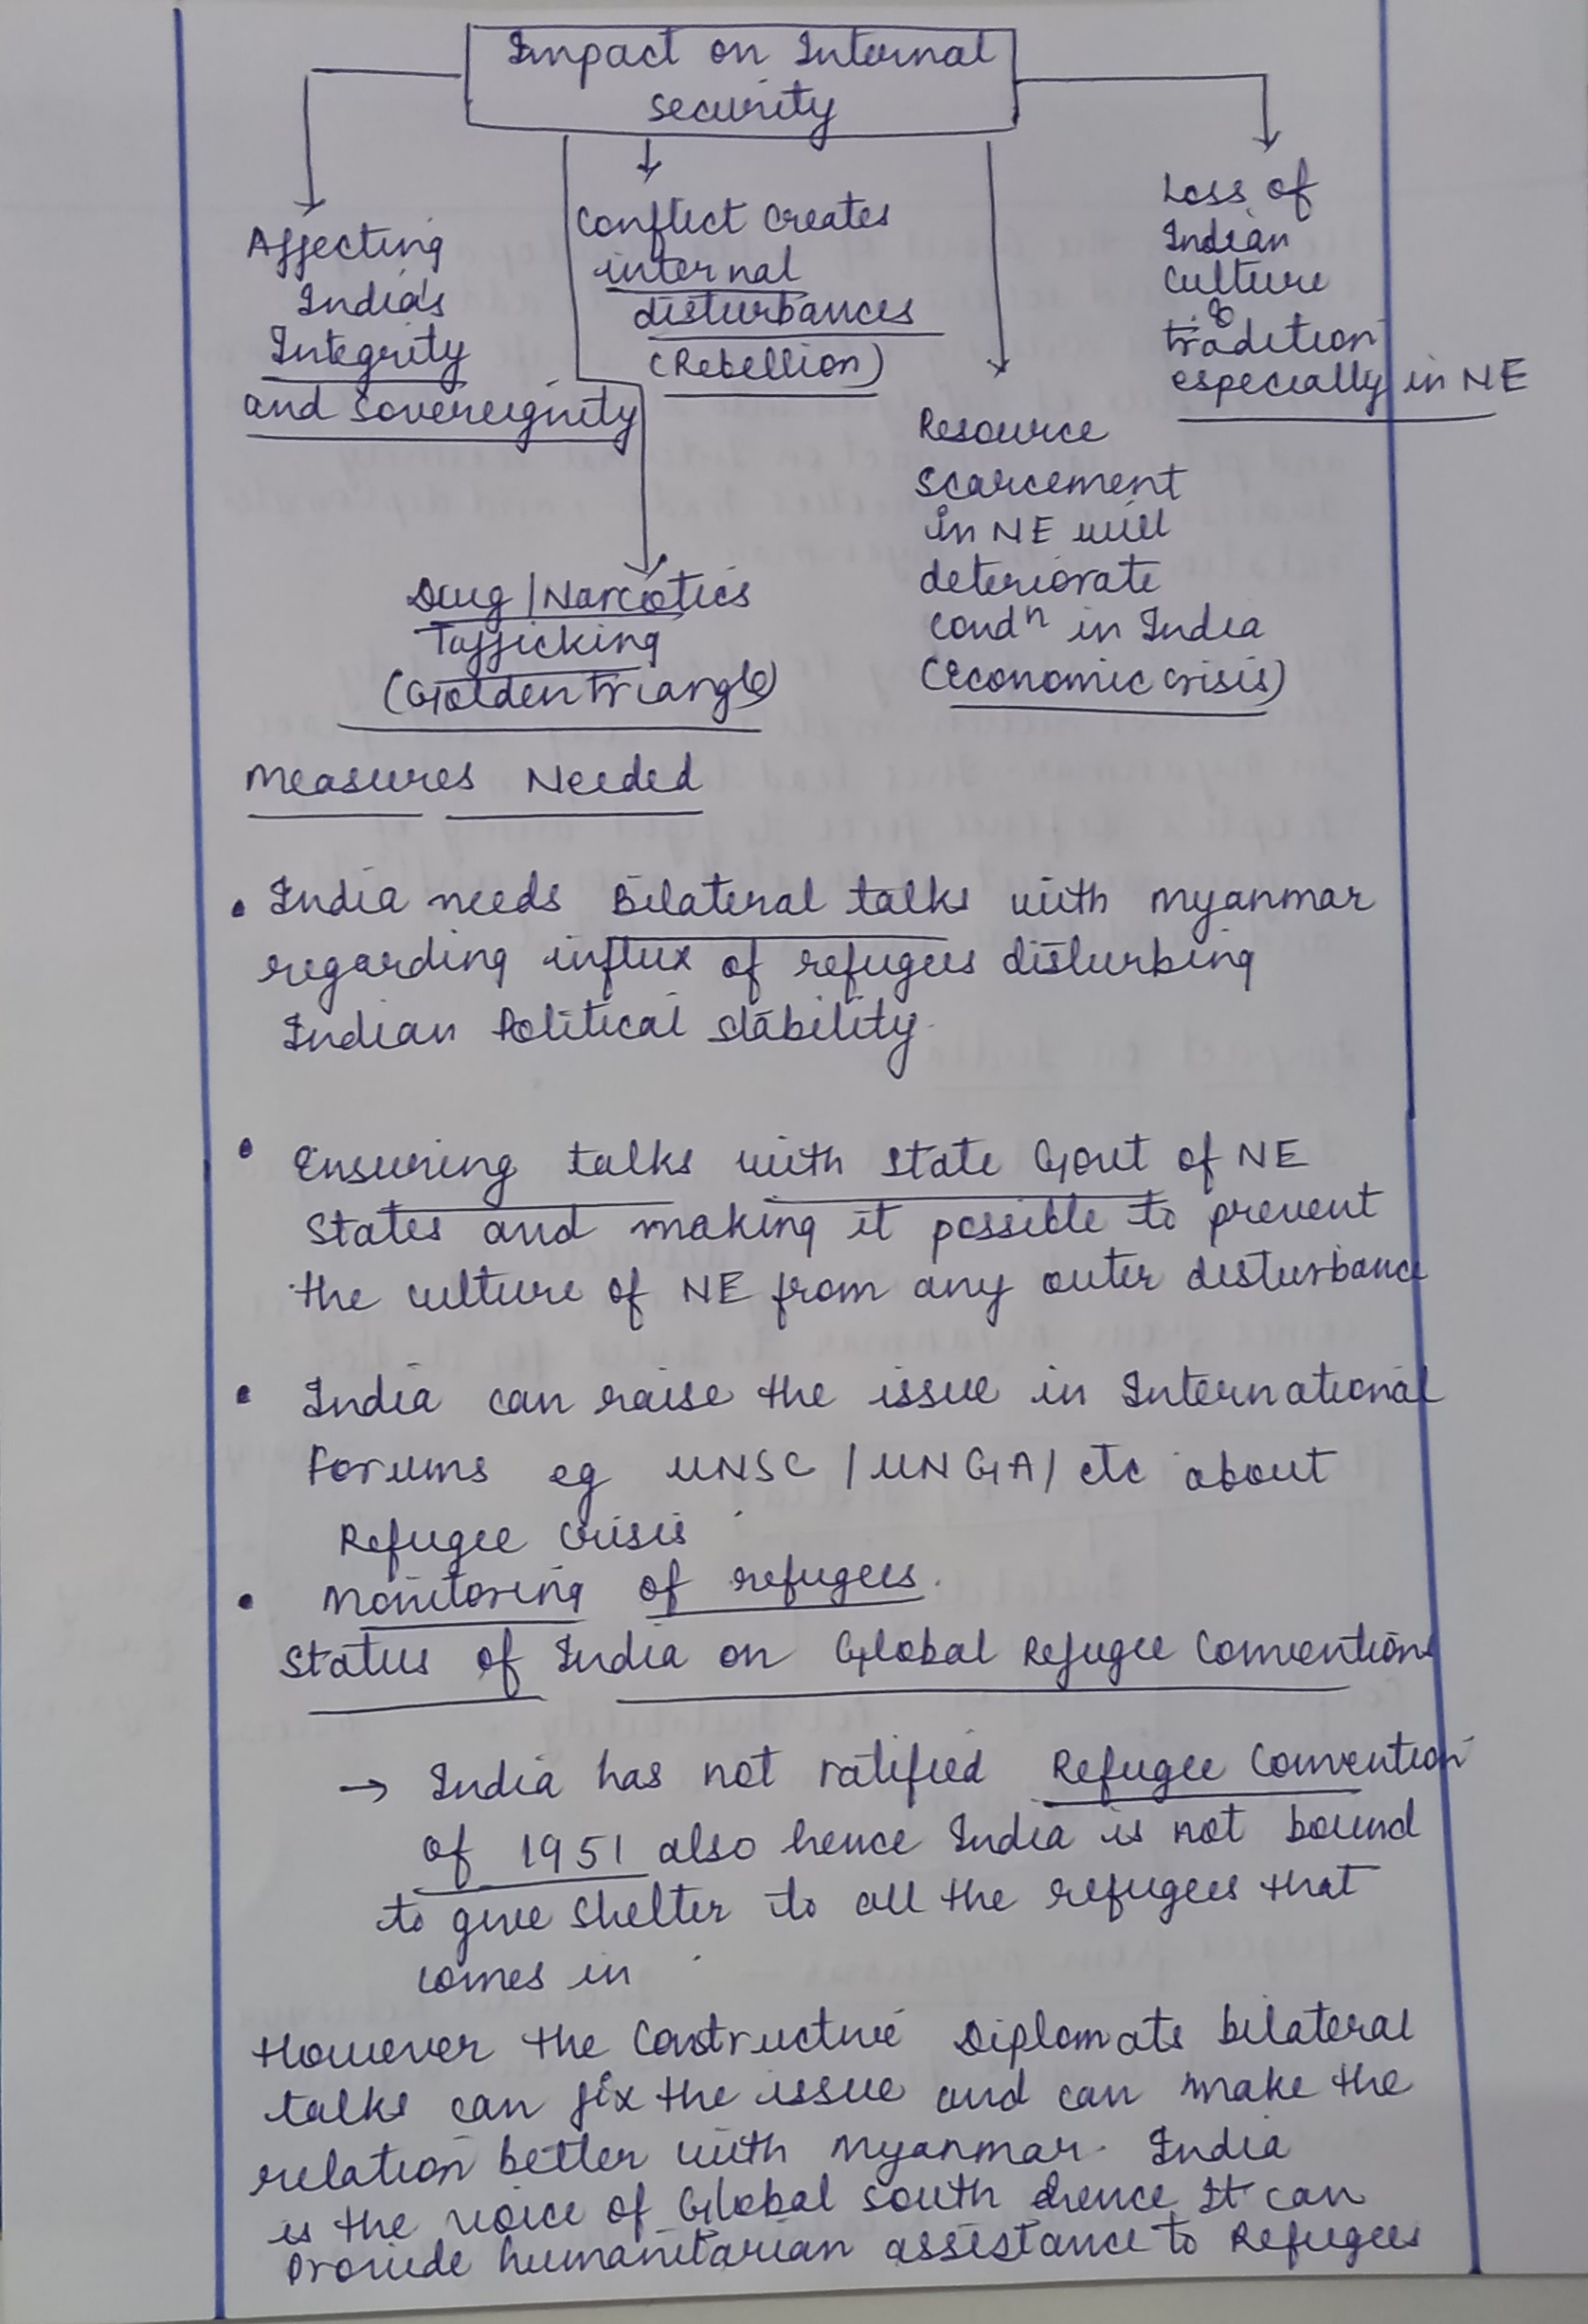 Impact on Internal
security
Affecting
India's
Integrity
and Sovereignity
Conflict creates
internal
disturbances
(Rebellion)
Loss of
Indian
culture
&
tradition
especially in NE
Resource
scarcement
in NE will
deteriorate
condn in India
(Economic crisis)
Drug/Narcotics
Tafficking
(Golden Triangle)
Measures Needed
• India needs Bilateral talks with Myanmar
regarding influx of refugees disturbing
Indian Political stability.
• Ensuring talks with State Govt of NE
States and making it possible to prevent
the culture of NE from any outer disturbance
• India can raise the issue in International
Forums eg UNSC/UNGA/etc about
Refugee Crisis
• Monitoring of refugees.
Status of India on Global Refugee Conventions
→ India has not ratified Refugee Convention
of 1951 also hence India is not bound
to give shelter to all the refugees that
comes in
However the Constructive Diplomats bilateral
talks can fix the issue and can make the
relation better with Myanmar. India
is the voice of Global South hence It can
Provide humanitarian assistance to Refugees